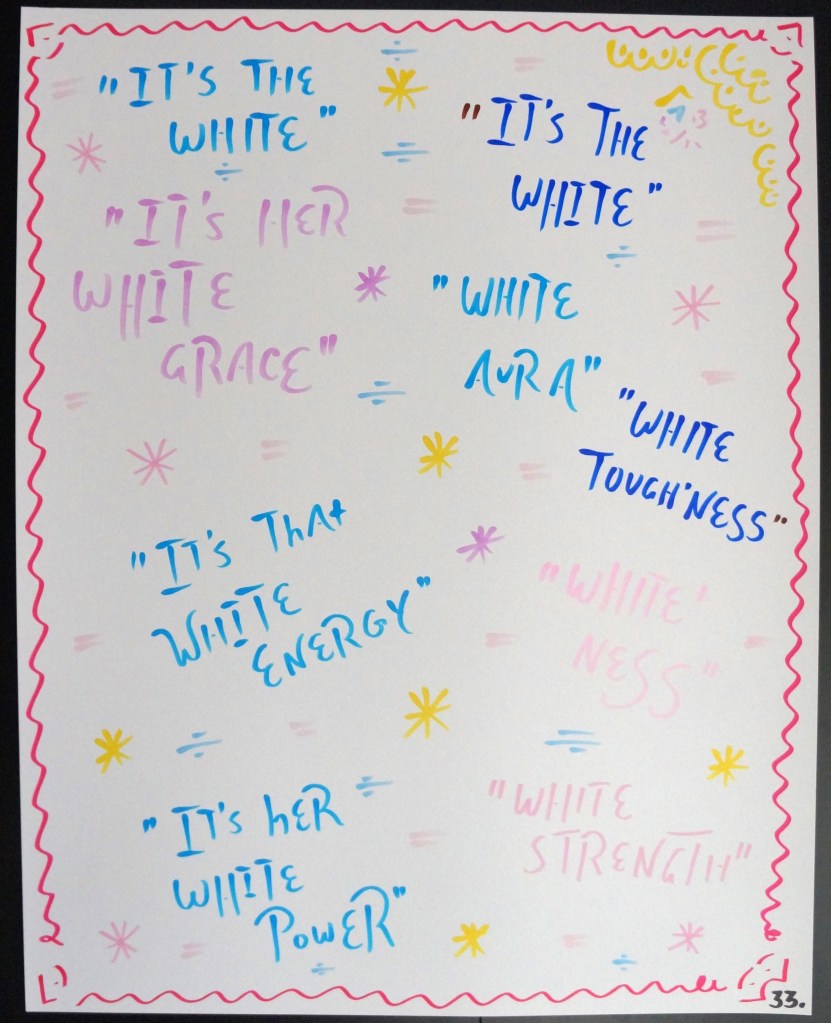 "IT'S THE
WHITE"
"IT'S THE
WHITE"
"IT'S HER
WHITE
GRACE"
"WHITE
AURA"
"WHITE
TOUGH'NESS"
"IT'S ThAt
WHITE
ENERGY"
"WHITE'
NESS"
"IT'S hER
WHITE
POWER"
"WHITE
STRENGTH"
33.